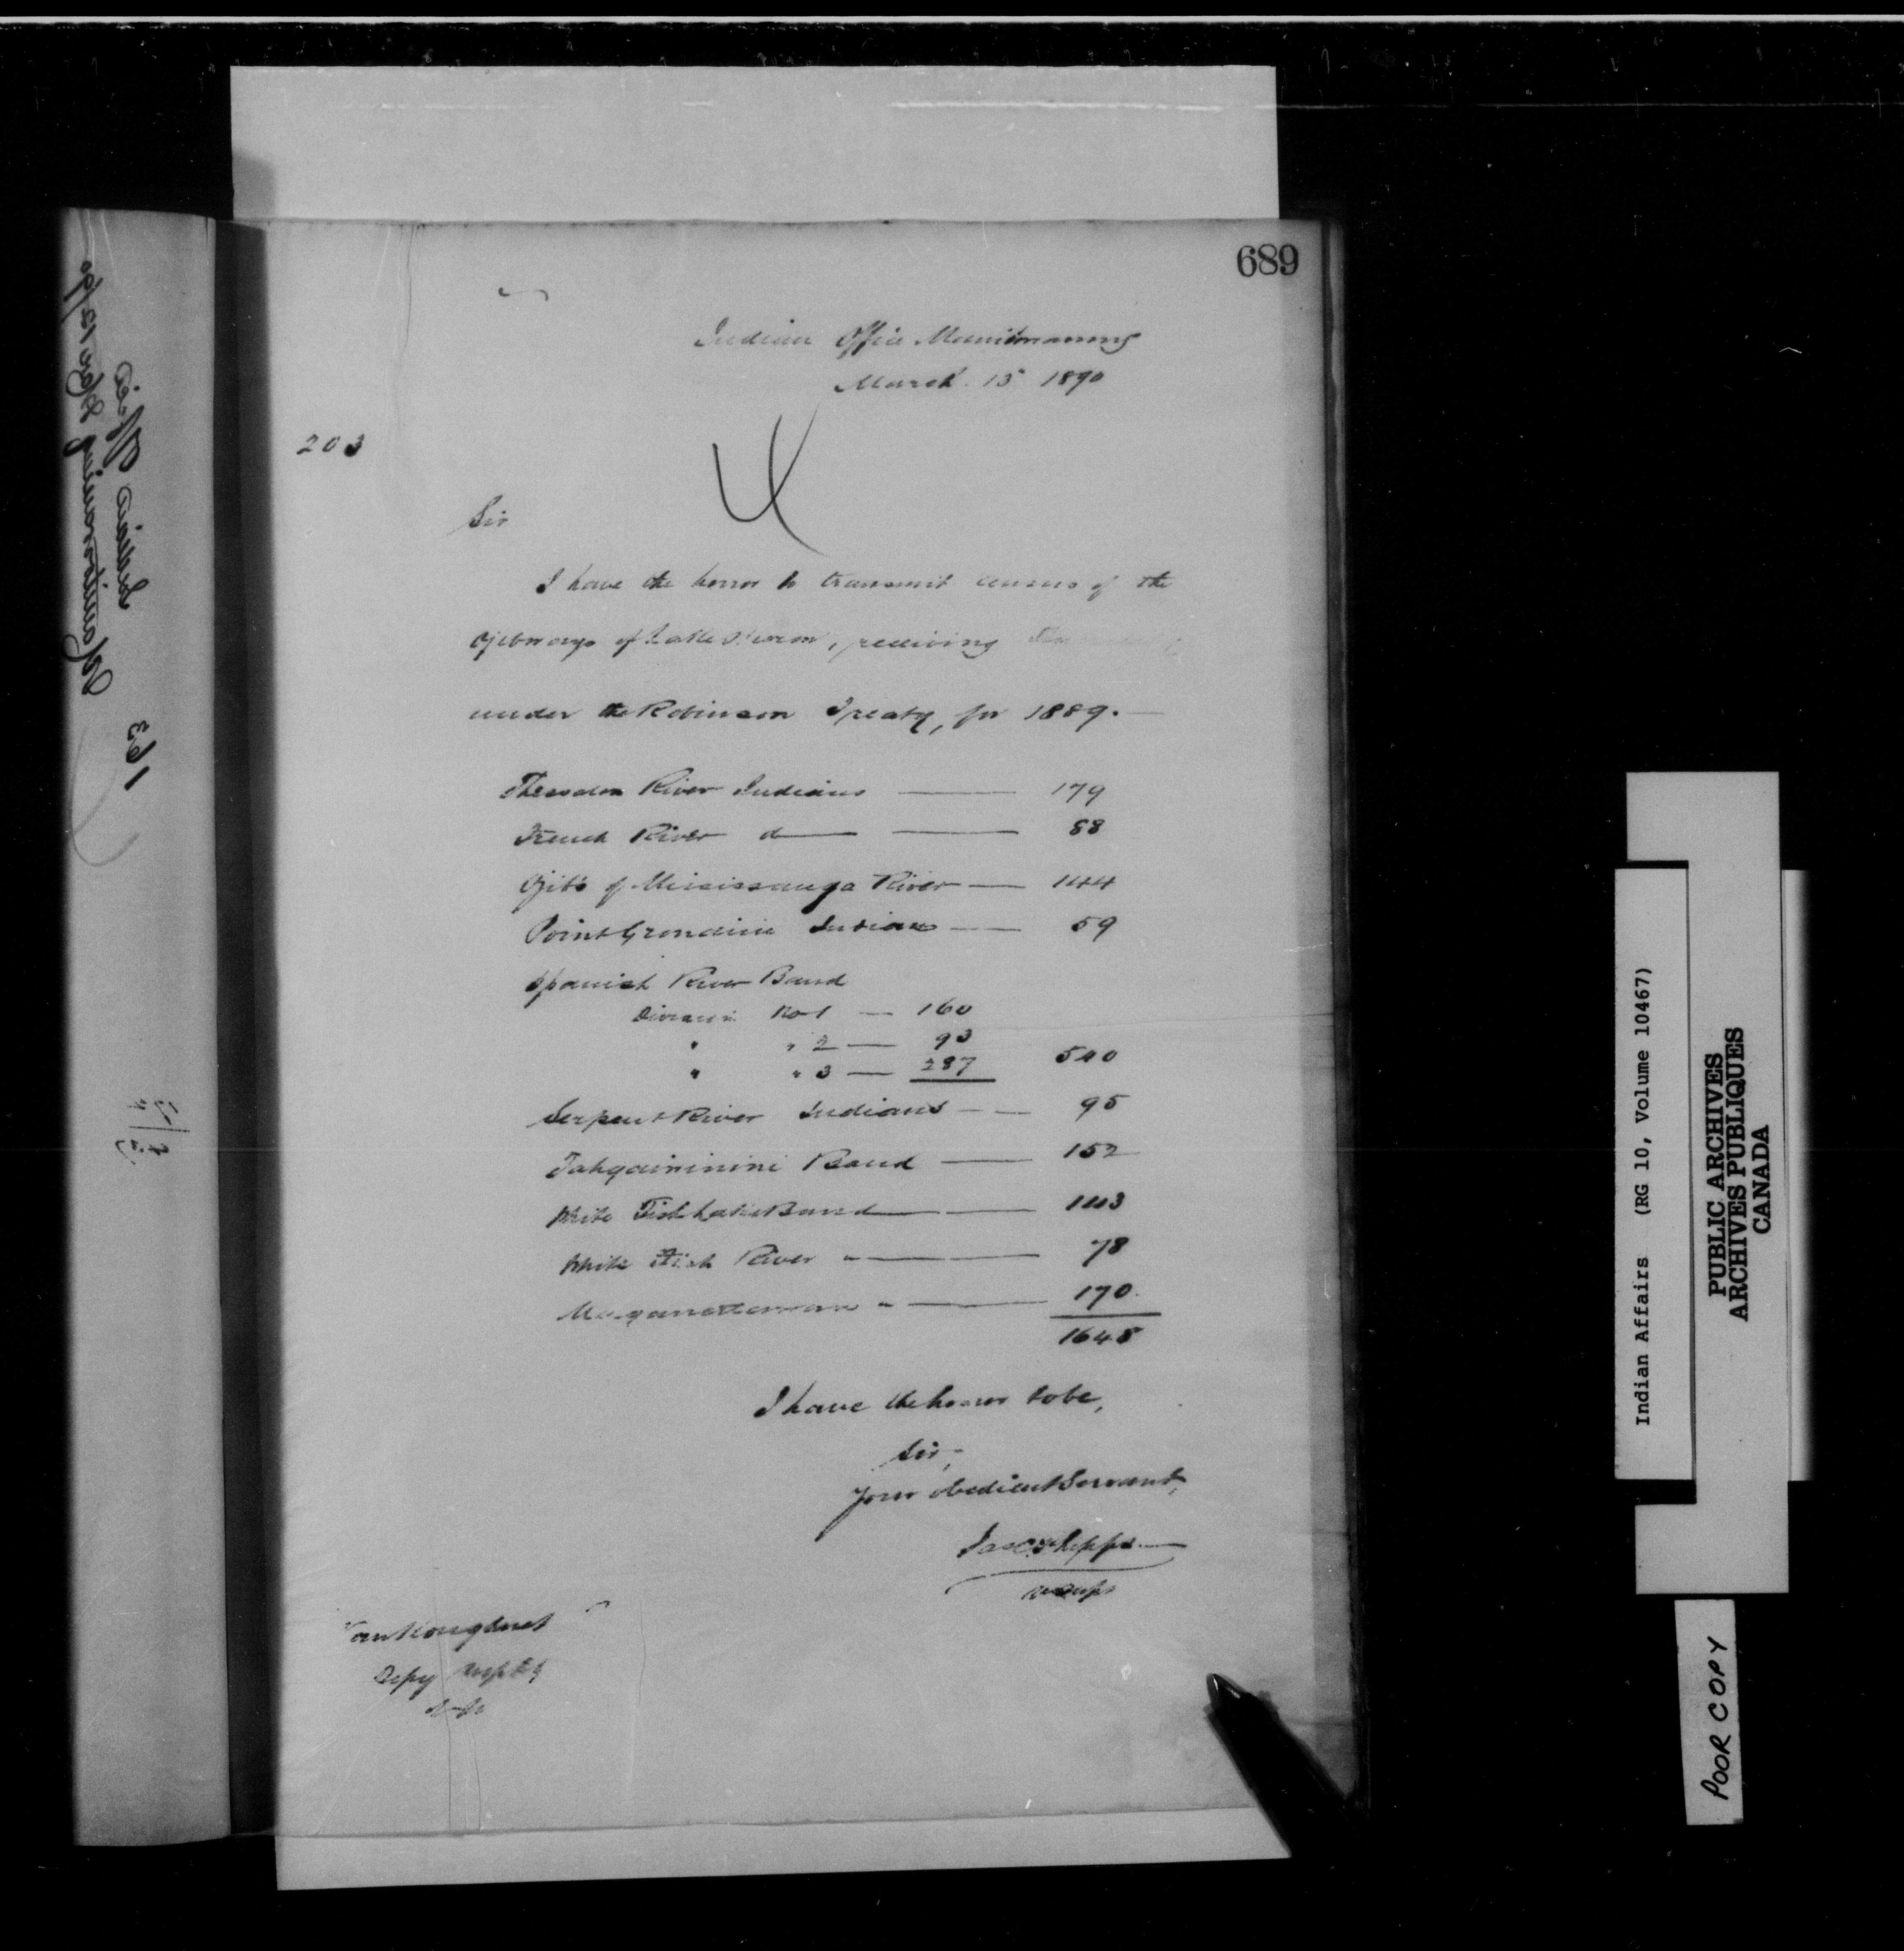 689
Indian Office Manitowaning
March 15 1890
203
Sir
I have the honor to transmit census of the
Ojibways of Lake Huron, receiving
under the Robinson Treaty, for 1889.—
Thessalon River Indians — 179
French River do — 88
Ojib's of Mississauga River — 144
Point Grondine Indians — 59
Spanish River Band
Division No 1 — 160
" " 2 — 93
" " 3 — 287 540
Serpent River Indians — 95
Tahgaiwinini Band — 152
White Fish Lake Band — 143
White Fish River " — 78
170
1648
I have the honor to be,
Sir,
Your obedient Servant,
Jas. C. Phipps
VanKoughnet
Depy Supt
Indian Office
Manitowaning
163
Indian Affairs (RG 10, Volume 10467)
PUBLIC ARCHIVES
ARCHIVES PUBLIQUES
CANADA
POOR COPY